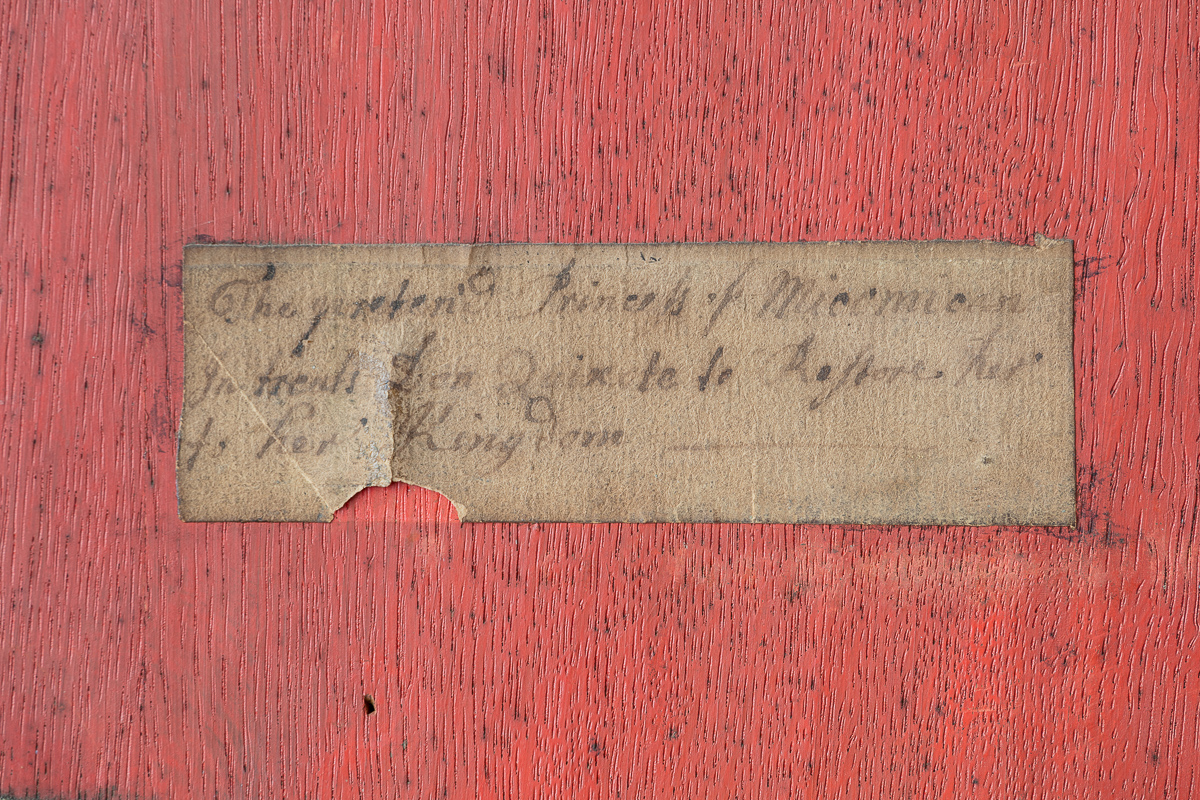 The preten'd Princess of Micomicon
Intreats Don Quixote to Restore her
to her Kingdom